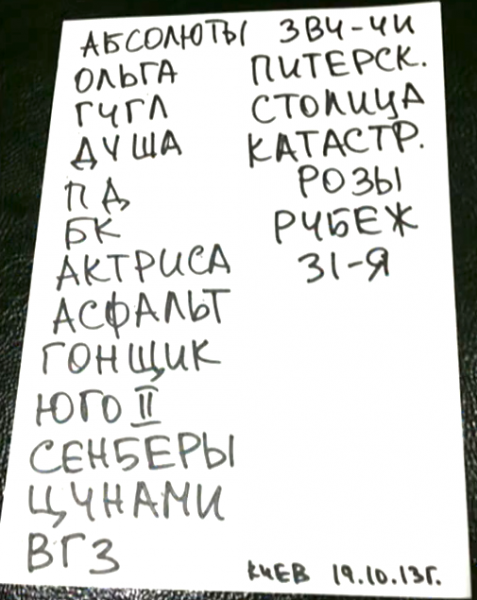 АБСОЛЮТЫ
ОЛЬГА
ГУГЛ
ДУША
ПД
БК
АКТРИСА
АСФАЛЬТ
ГОНЩИК
ЮГО II
СЕНБЕРЫ
ЦУНАМИ
ВГЗ
ЗВУ-ЧИ
ПИТЕРСК.
СТОЛИЦА
КАТАСТР.
РОЗЫ
РУБЕЖ
31-Я
КИЕВ 19.10.13Г.